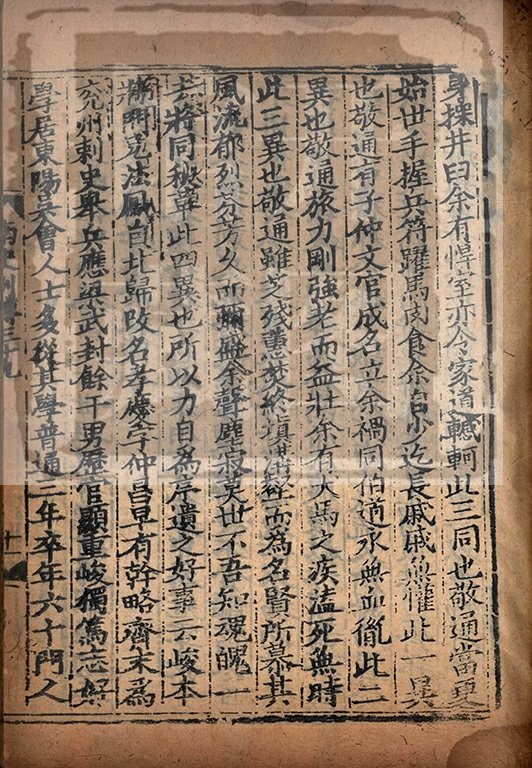 身操井臼余有悍室亦令家道轗軻此三同也敬通當更
始世手握兵符躍馬肉食余自少迄長戚戚無懽此一異
也敬通有子仲文官成名立余禍同伯道永無血胤此二
異也敬通旅力剛強老而益壯余有犬馬之疾溘死無時
此三異也敬通雖芝殘蕙焚終填溝壑而為名賢所慕其
風流郁烈芬芳久而彌盛余聲塵寂莫世不吾知魂魄一
去將同秋草此四異也所以力自為序遺之好事云峻本
將門兄法鳳自北歸改名孝慶字仲昌早有幹略齊末為
兖州刺史舉兵應梁武封餘干男歷官顯重峻獨篤志好
學居東陽吳會人士多從其學普通三年卒年六十門人
南史列傳三十九
十